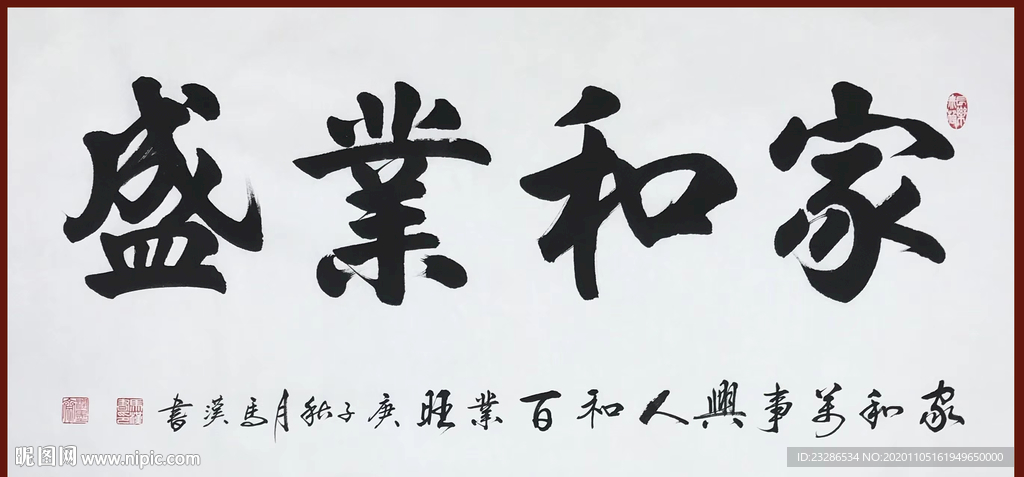 家和業盛
家和萬事興人和百業旺庚子秋月馬漢書
昵图网 www.nipic.com
ID:23286534 NO:20201105161949650000